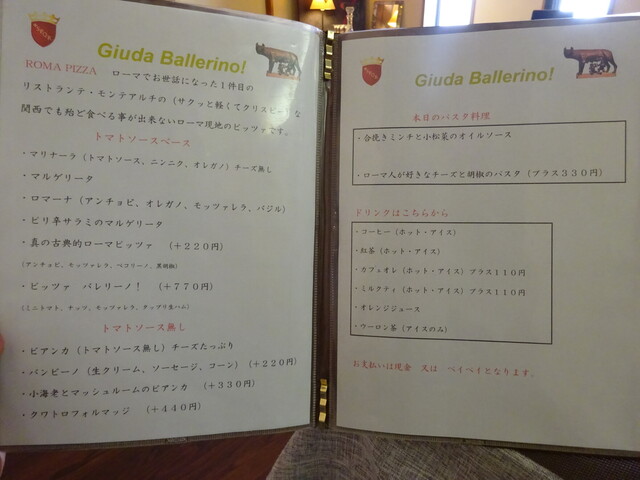 Giuda Ballerino!
ROMA PIZZA ローマでお世話になった1件目の
リストランテ・モンテアルチの(サクッと軽くてクリスピーな
関西でも殆ど食べる事が出来ないローマ現地のピッツァです。
トマトソースベース
・マリナーラ(トマトソース、ニンニク、オレガノ)チーズ無し
・マルゲリータ
・ロマーナ(アンチョビ、オレガノ、モッツァレラ、バジル)
・ピリ辛サラミのマルゲリータ
・真の古典的ローマピッツァ (+220円)
(アンチョビ、モッツァレラ、ペコリーノ、黒胡椒)
・ピッツァ バレリーノ! (+770円)
(ミニトマト、ナッツ、モッツァレラ、タップリ生ハム)
トマトソース無し
・ビアンカ(トマトソース無し)チーズたっぷり
・バンビーノ(生クリーム、ソーセージ、コーン)(+220円)
・小海老とマッシュルームのビアンカ (+330円)
・クワトロフォルマッジ (+440円)
Giuda Ballerino!
本日のパスタ料理
・合挽きミンチと小松菜のオイルソース
・ローマ人が好きなチーズと胡椒のパスタ(プラス330円)
ドリンクはこちらから
・コーヒー(ホット・アイス)
・紅茶(ホット・アイス)
・カフェオレ(ホット・アイス)プラス110円
・ミルクティ(ホット・アイス)プラス110円
・オレンジジュース
・ウーロン茶(アイスのみ)
お支払いは現金 又は ペイペイとなります。